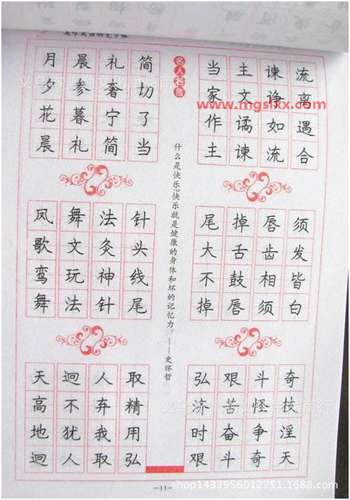 月夕花晨
晨参暮礼
礼奢宁简
简切了当
名人名言
当家作主
主文谲谏
谏诤如流
流离遇合
www.mgslxx.com
什么是快乐?快乐就是健康的身体和坏的记忆力。——史怀哲
风歌鸾舞
舞文玩法
法灸神针
针头线尾
尾大不掉
掉舌鼓唇
唇齿相须
须发皆白
天高地迥
迥不犹人
人弃我取
取精用弘
弘济时艰
艰苦奋斗
斗怪争奇
奇技淫天
—11—